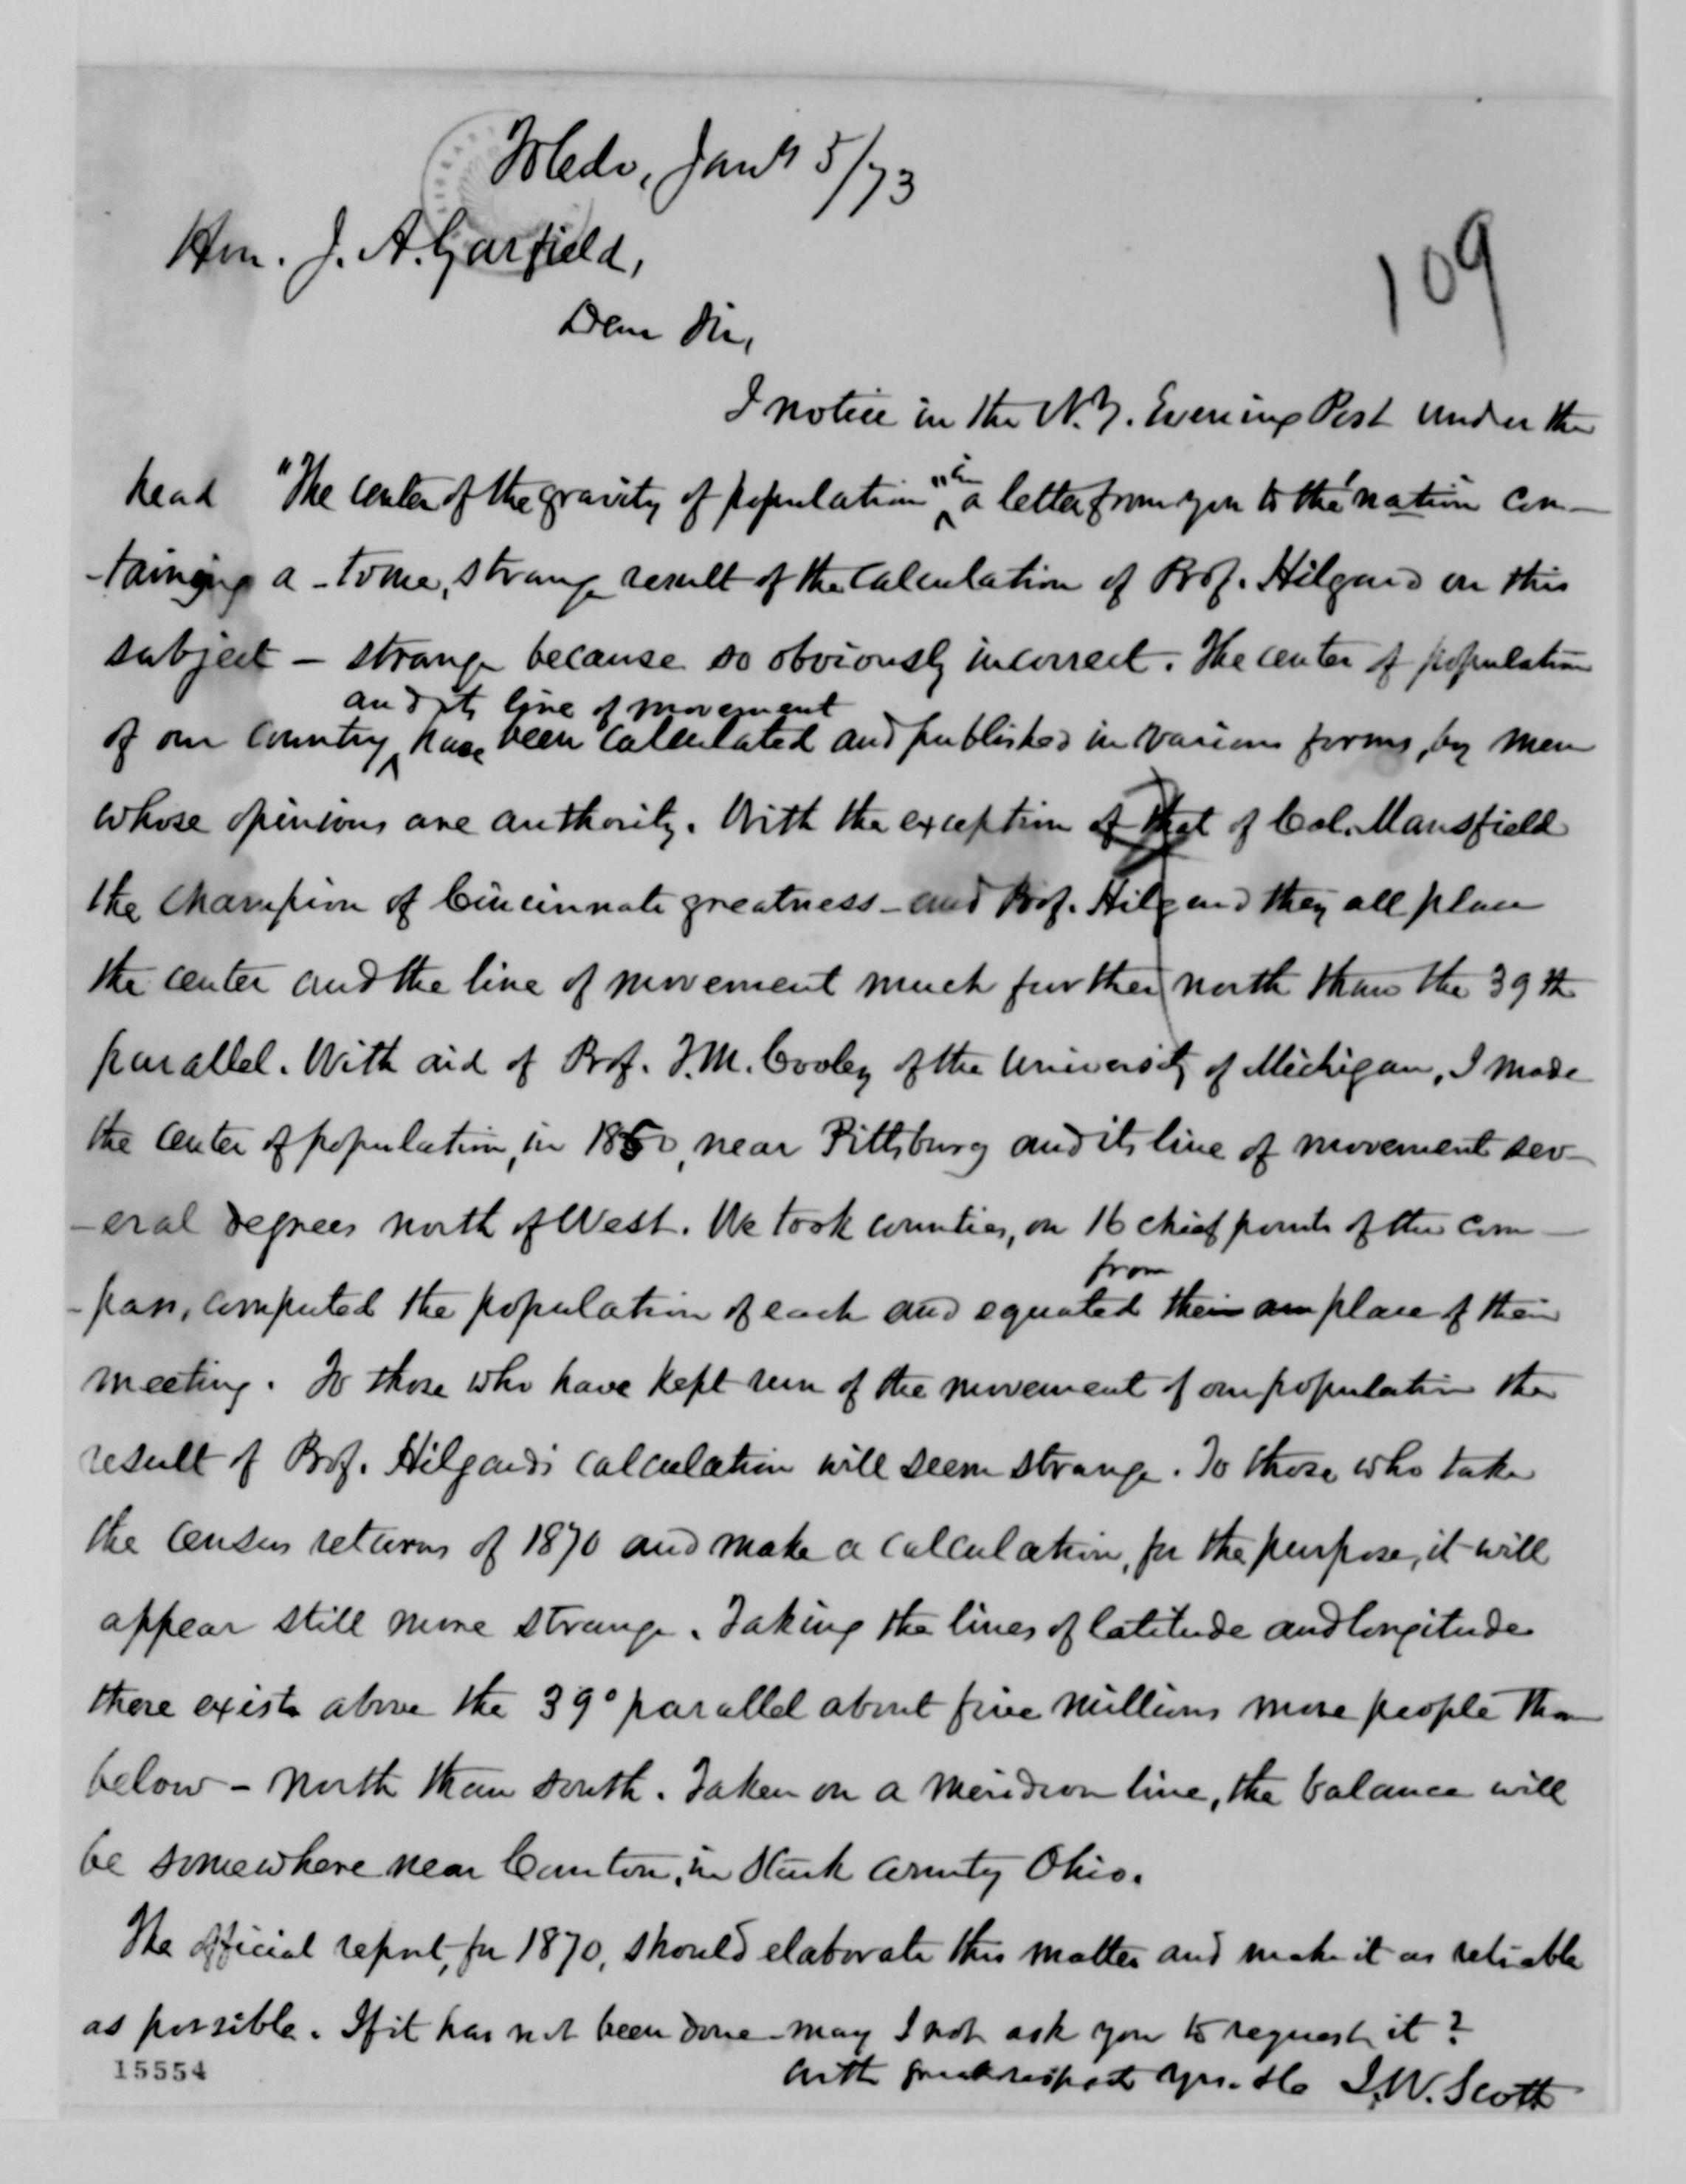 Toledo, Jany 5/73
109
Hon. J. A. Garfield,
Dear Sir,
I notice in the N.Y. Evening Post under the
head "The center of the gravity of population" in a letter from you to the nation con-
-taining a - to me, strange result of the calculation of Prof. Hilgard on this
subject - strange because so obviously incorrect. The center of population
and its line of movement
of our country have been calculated and published in various forms, by men
whose opinions are authority. With the exception of that of Col. Mansfield
the champion of Cincinnati greatness - and Prof. Hilgard they all place
the center and the line of movement much further north than the 39th
parallel. With aid of Prof. T. M. Cooley of the University of Michigan, I made
the center of population, in 1850, near Pittsburg and its line of movement sev-
-eral degrees north of West. We took counties, on 16 chief points of the com-
from
-pass, computed the population of each and equated their place of their
meeting. To those who have kept run of the movement of our population the
result of Prof. Hilgard's calculation will seem strange. To those who take
the census returns of 1870 and make a calculation, for the purpose, it will
appear still more strange. Taking the lines of latitude and longitude
there exists above the 39° parallel about five millions more people than
below - north than south. Taken on a meridian line, the balance will
be somewhere near Canton, in Stark county Ohio.
The official report, for 1870, should elaborate this matter and make it as reliable
as possible. If it has not been done may I not ask you to request it?
With great respect yrs. &c J. W. Scott
15554